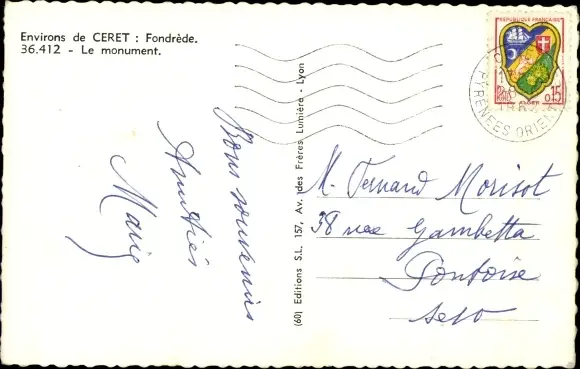 Environs de CERET : Fondrède.
36.412 - Le monument.
Bons souvenirs
Amitiés
(60) Editions S.L. 157, Av. des Frères Lumière - Lyon
REPUBLIQUE FRANÇAISE
POSTES
0,15
ALGER
PYRENEES ORIEN
M. Fernand Morisot
38 rue Gambetta
Pontoise